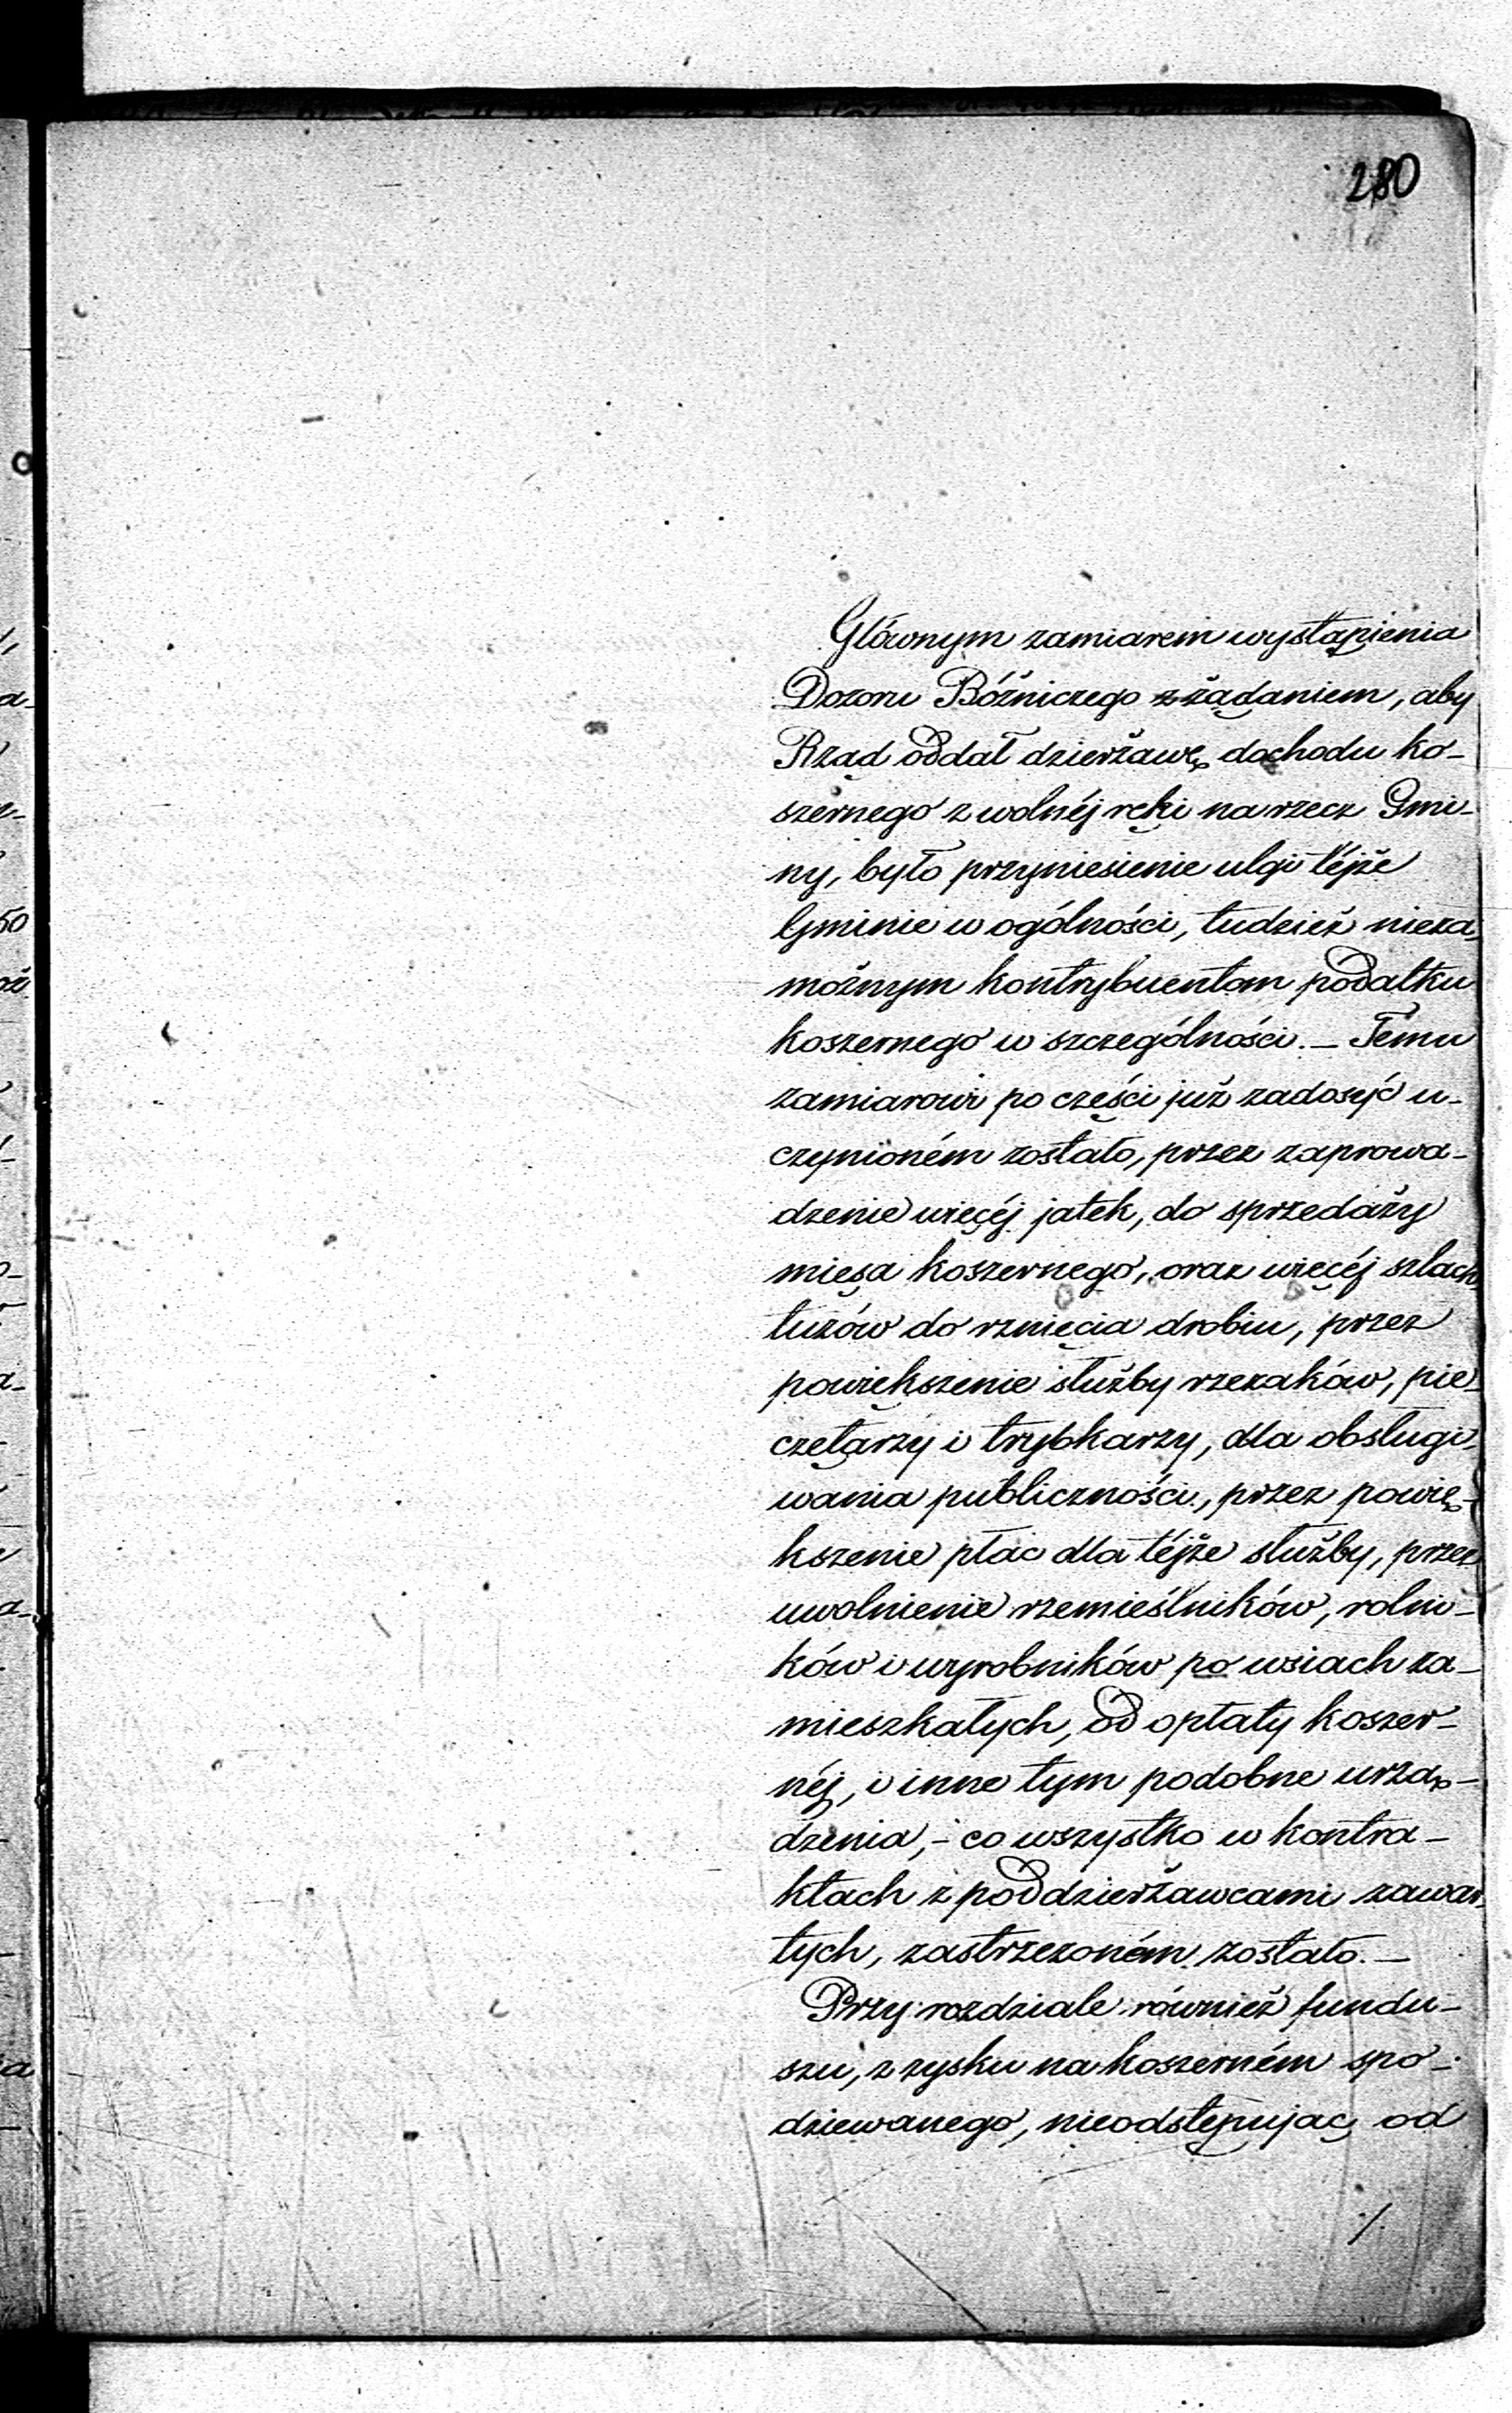 280
Głównym zamiarem wystąpienia
Dozoru Bóżniczego z żądaniem, aby
Rząd oddał dzierżawę dochodu ko-
szernego z wolnéj ręki na rzecz Gmi-
ny, było przyniesienie ulgi téjże
Gminie w ogólności, tudzież nieza-
możnym kontrybuentom podatku
koszernego w szczególności. — Temu
zamiarowi po części już zadosyć u-
czynioném zostało, przez zaprowa-
dzenie więcéj jatek, do sprzedaży
mięsa koszernego, oraz więcéj szlach
tuzów do rznięcia drobiu, przez
powiększenie służby rzezaków, pie-
czętarzy i trybkarzy, dla obsługi-
wania publiczności, przez powię-
kszenie płac dla téjże służby, przez
uwolnienie rzemieślników, rolni-
ków i wyrobników po wsiach za-
mieszkałych, od opłaty koszer-
néj, i inne tym podobne urzą-
dzenia, - co wszystko w kontra-
ktach z poddzierżawcami zawar-
tych, zastrzeżoném zostało. —
Przy rozdziale również fundu-
szu, z zysku na koszerném spo-
dziewanego, nieodstępując od
./.